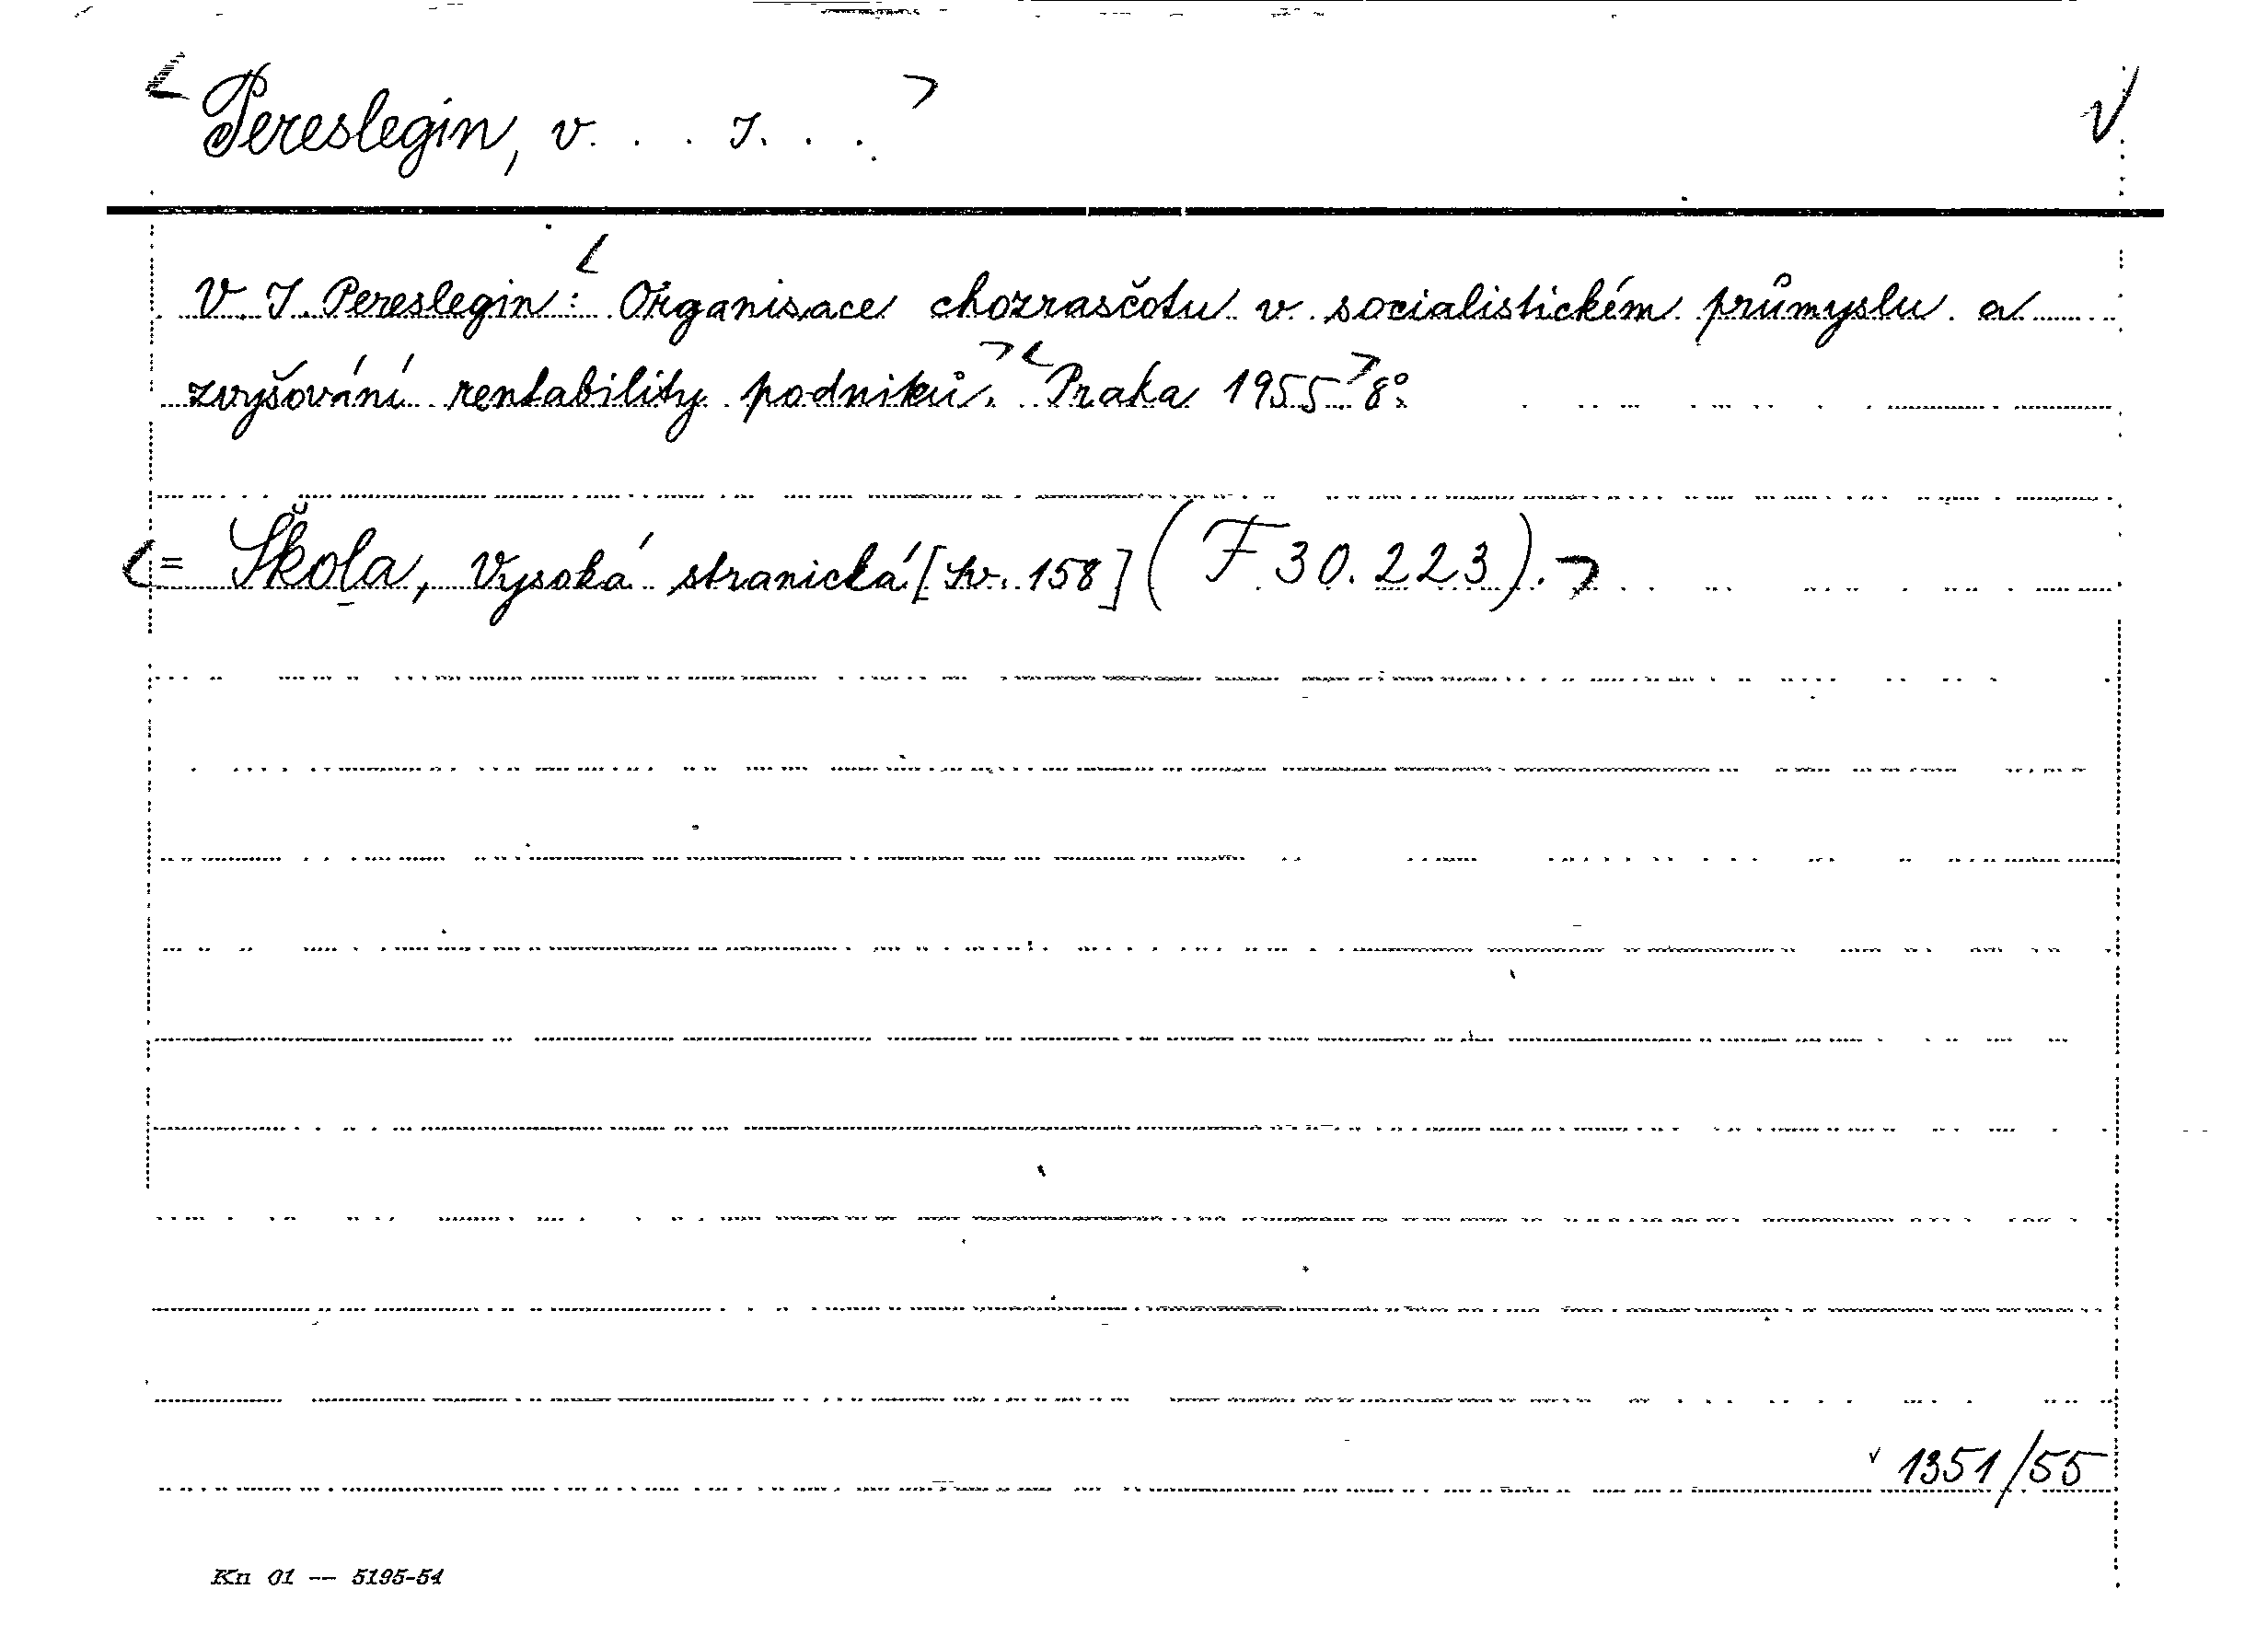 Pereslegin, V... I...
V. I. Pereslegin: Organisace chozrasčotu v socialistickém průmyslu a
zvyšování rentability podniků. Praha 1955. 8°.
= Škola, Vysoká stranická [Sv. 158] (F 30.223).
1351/55
Kn 01 — 5195-54